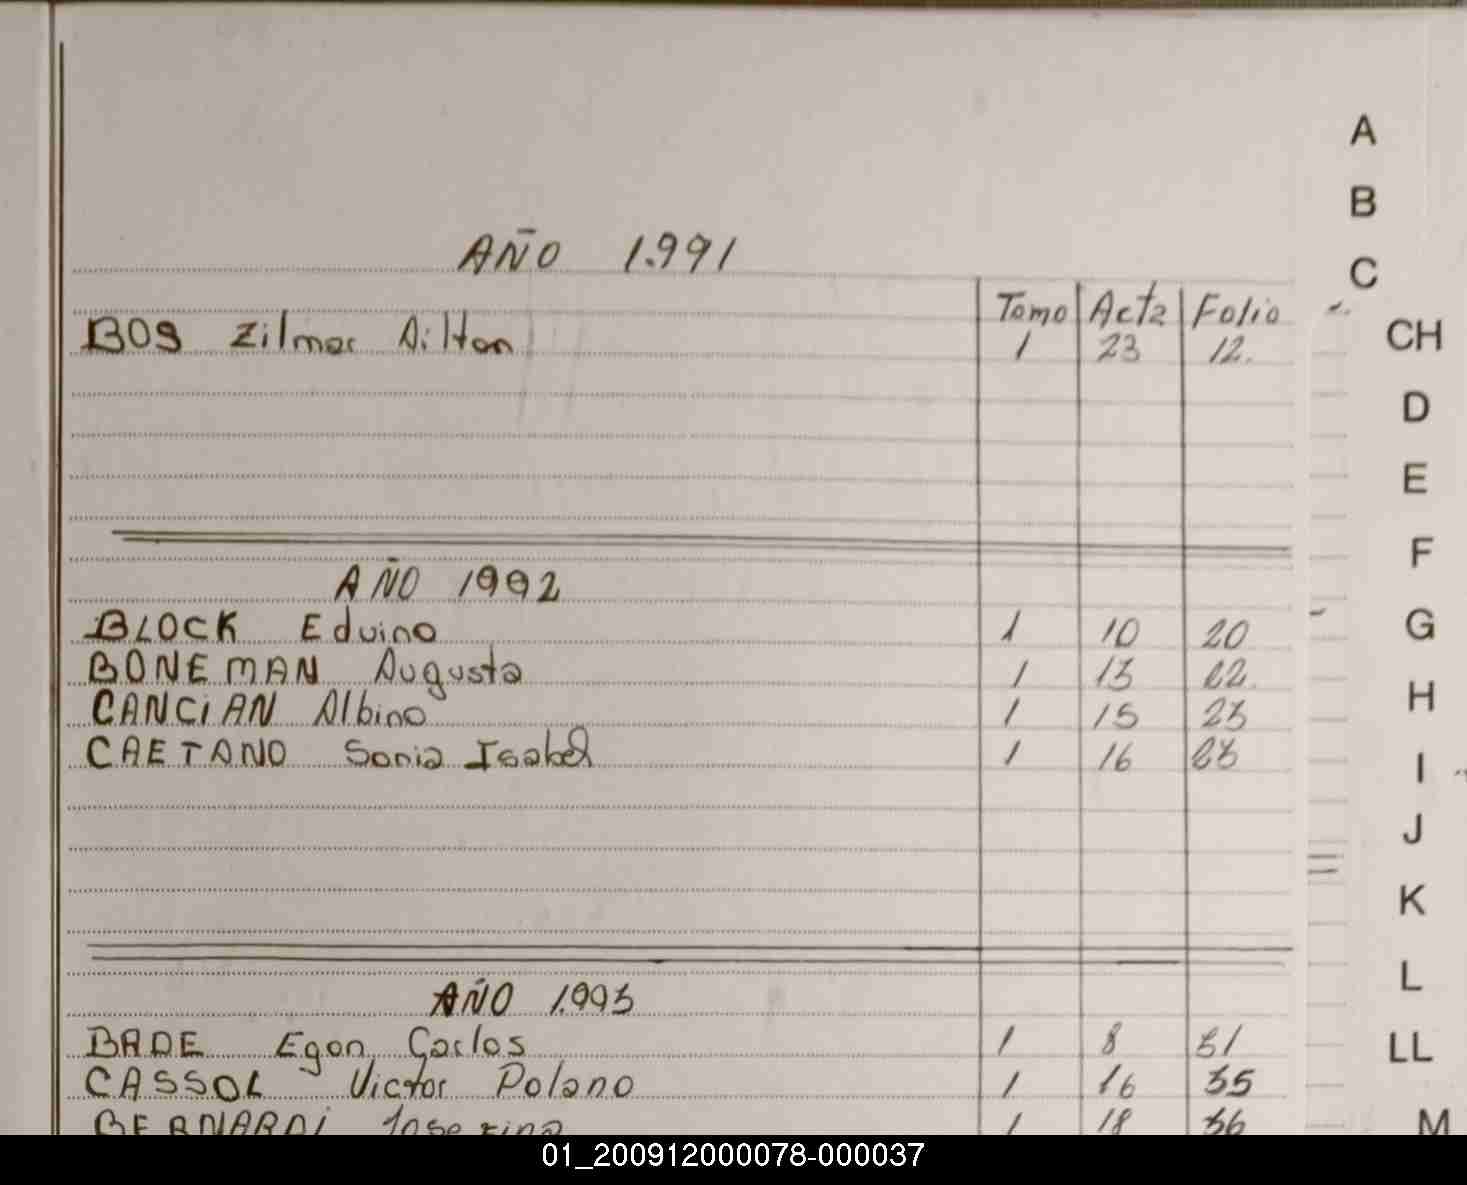 A
B
C
AÑO 1.991
Tomo Acta Folio
CH
BOS Zilmar Ailton 1 23 12.
D
E
F
AÑO 1992
BLOCK Eduino 1 10 20
G
BONEMAN Augusta 1 13 22
H
CANCIAN Albino 1 15 23
CAETANO Sonia Isabel 1 16 23
I
J
K
L
AÑO 1.993
BADE Egon Carlos 1 8 31
LL
CASSOL Victor Polano 1 16 35
BERNARDI 1 18 36
M
01_200912000078-000037